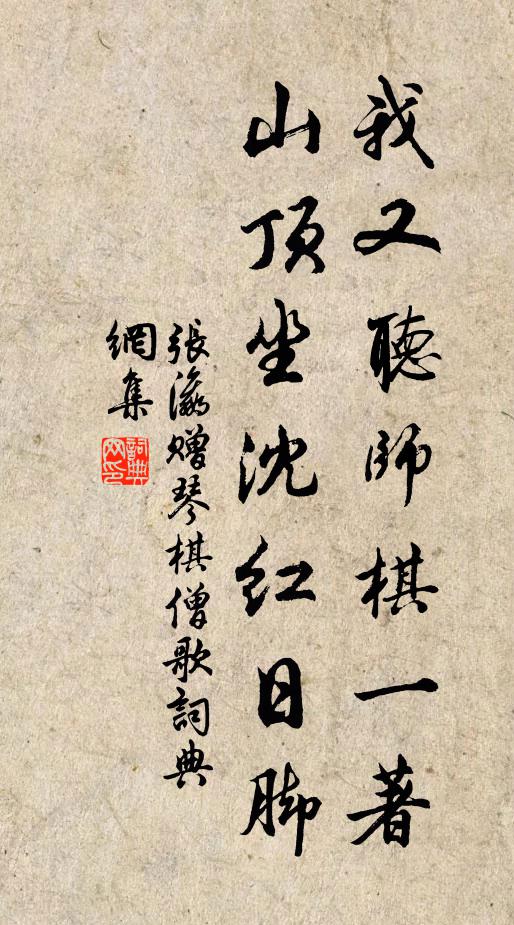 我又聽師棋一著
山顶坐沈红日脚
張瀛赠琴棋僧歌詞典
網集
詞典
网印